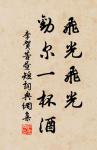 飛光飛光
勸爾一杯酒
李賀苦晝短詞典網集